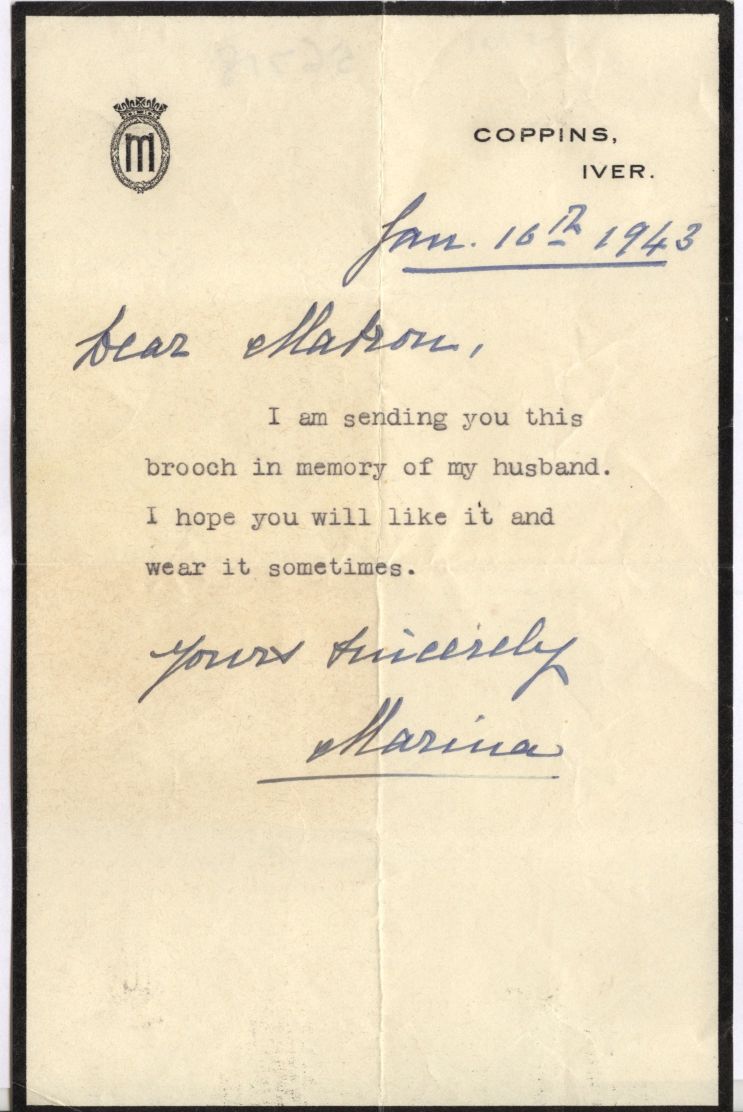 M
COPPINS,
IVER.
Jan. 16th 1943
Dear Matron,
I am sending you this
brooch in memory of my husband.
I hope you will like it and
wear it sometimes.
Yours sincerely
Marina